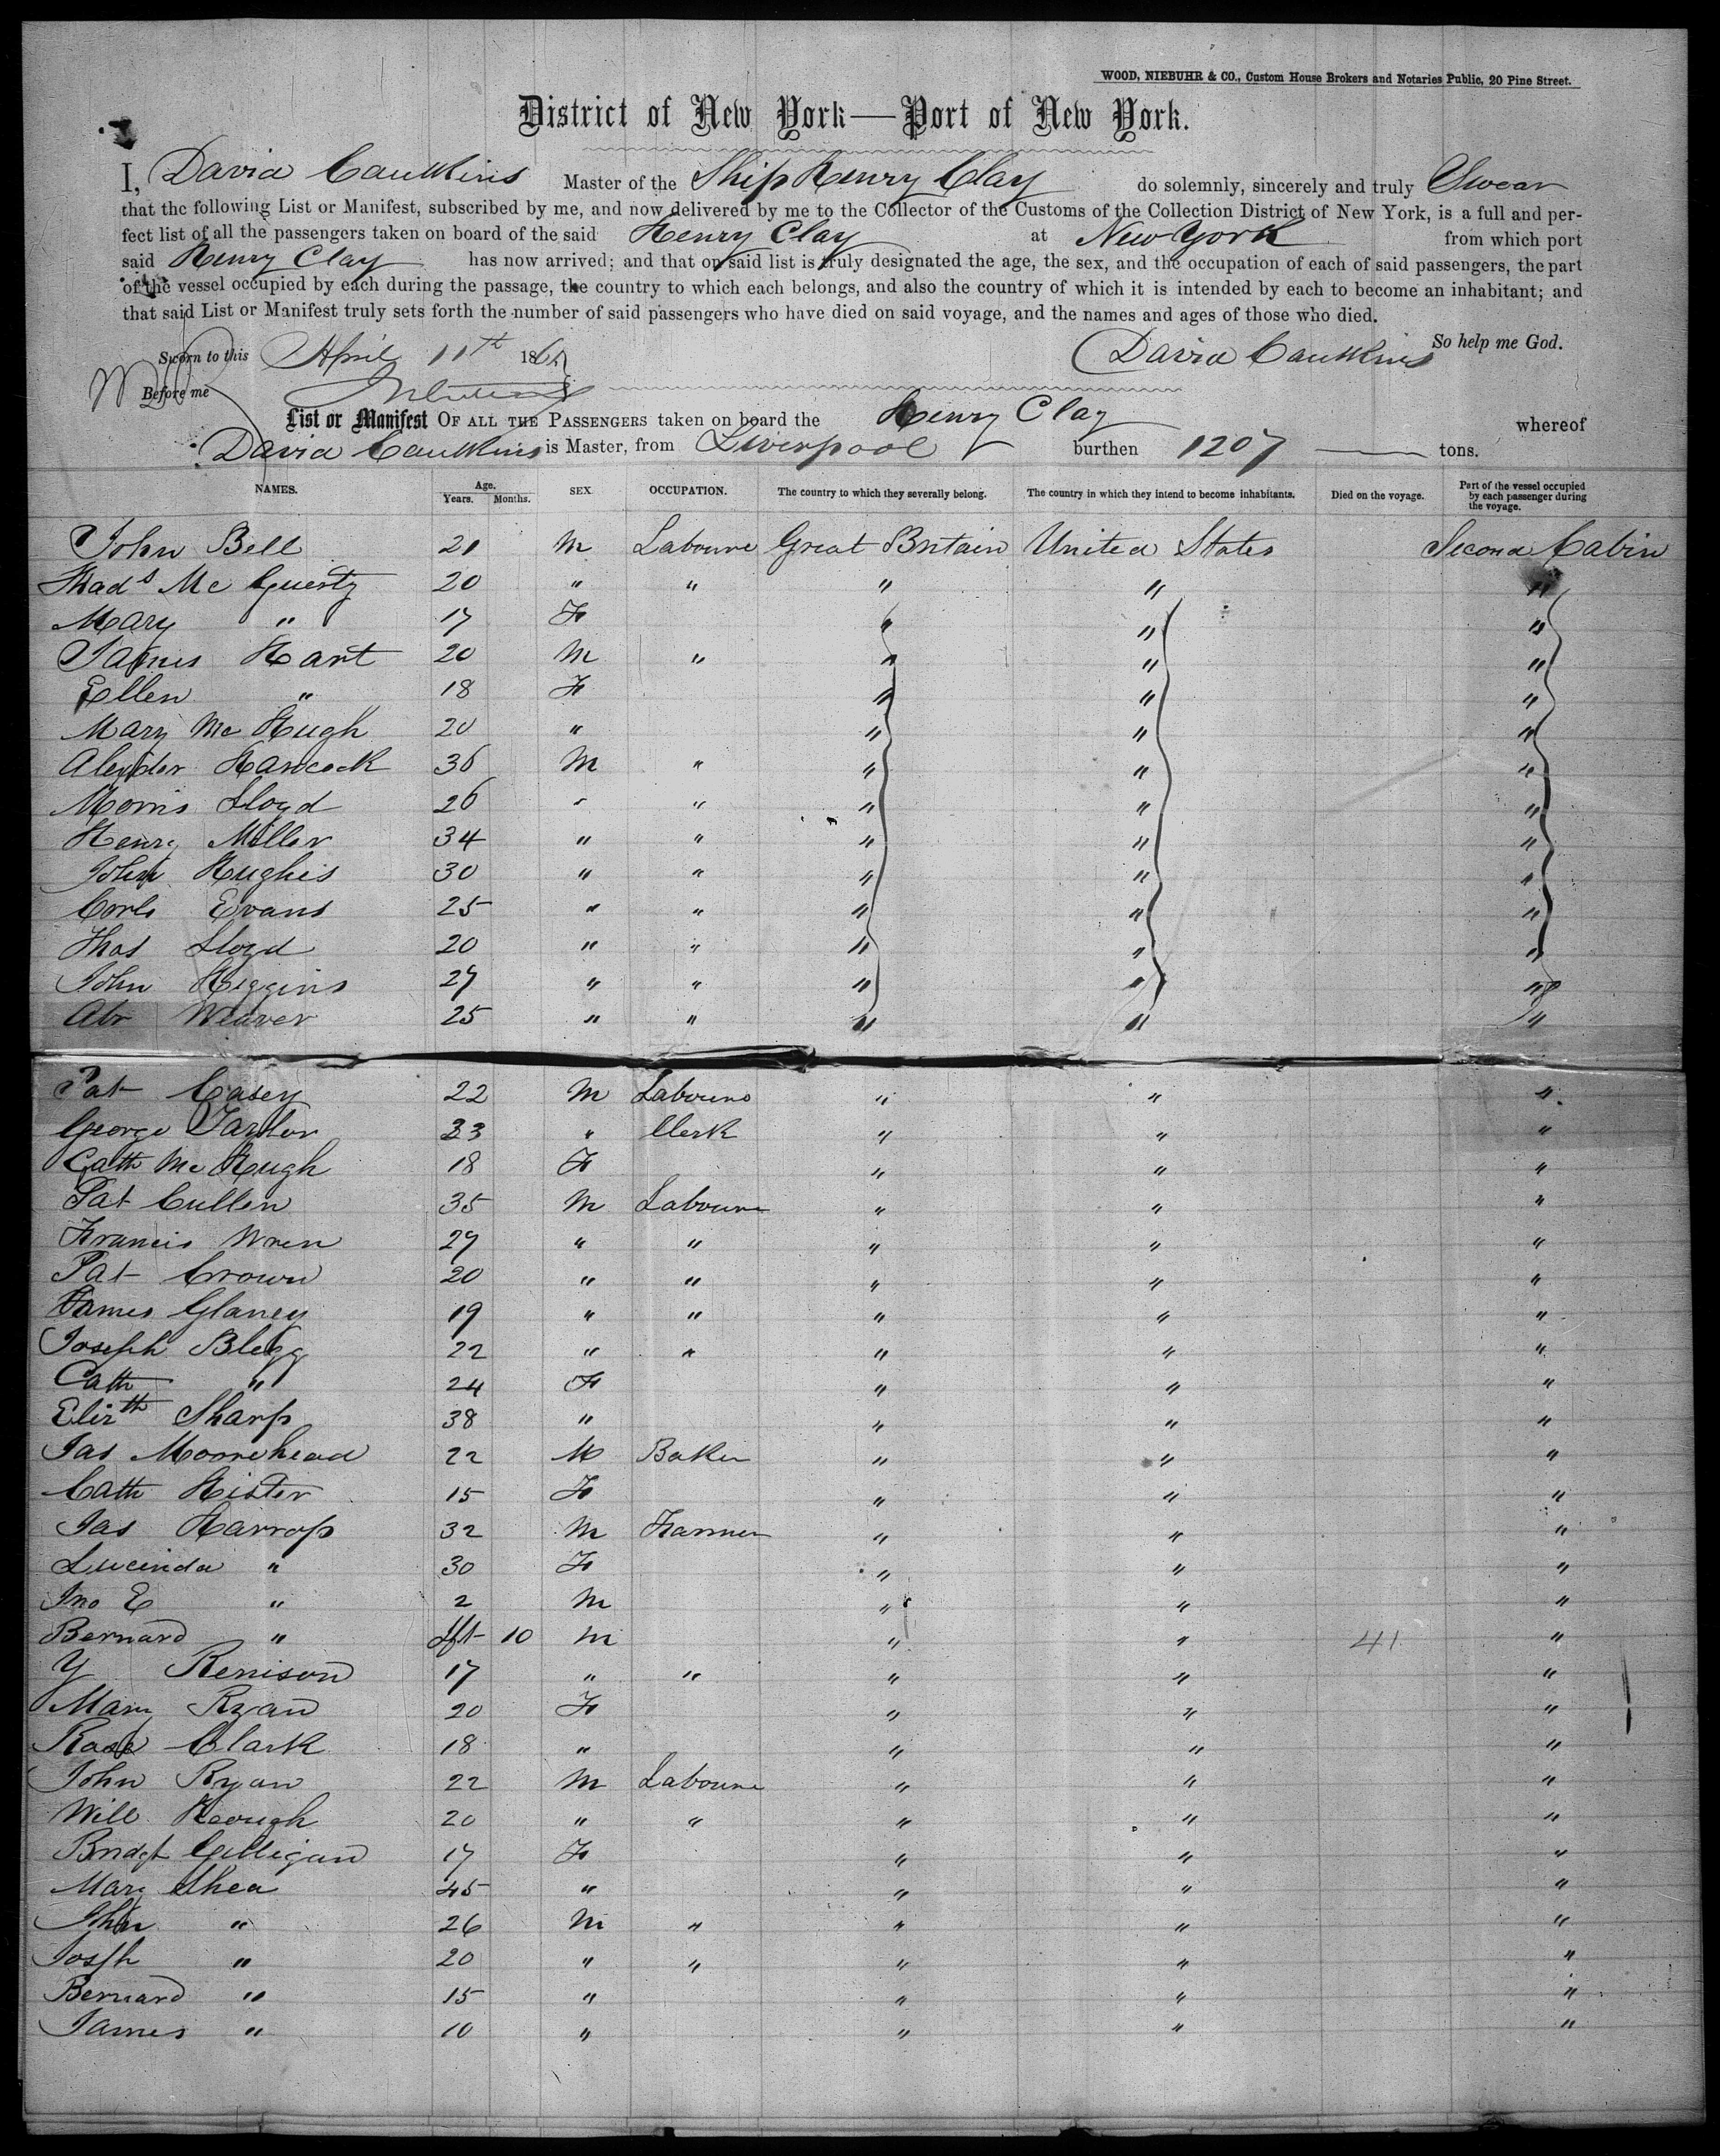 WOOD, NIEBUHR & CO., Custom House Brokers and Notaries Public, 20 Pine Street.
District of New York—Port of New York.
I, David Caulkins Master of the Ship Henry Clay do solemnly, sincerely and truly Swear
that the following List or Manifest, subscribed by me, and now delivered by me to the Collector of the Customs of the Collection District of New York, is a full and per-
fect list of all the passengers taken on board of the said Henry Clay at New York from which port
said Henry Clay has now arrived; and that on said list is truly designated the age, the sex, and the occupation of each of said passengers, the part
of the vessel occupied by each during the passage, the country to which each belongs, and also the country of which it is intended by each to become an inhabitant; and
that said List or Manifest truly sets forth the number of said passengers who have died on said voyage, and the names and ages of those who died.
So help me God.
Sworn to this April 11th 186 David Caulkins
Before me
List or Manifest OF ALL THE PASSENGERS taken on board the Henry Clay whereof
David Caulkins is Master, from Liverpool burthen 1207 tons.
NAMES. Age. Years. Months. SEX. OCCUPATION. The country to which they severally belong. The country in which they intend to become inhabitants. Died on the voyage. Part of the vessel occupied by each passenger during the voyage.
John Bell 21 M Laboure Great Britain United States Second Cabin
Thads Mc Guerty 20 " " " " "
Mary " 17 F " " "
James Hart 20 M " " " "
Ellen " 18 F " " "
Mary Mc Hugh 20 " " " "
Hancock 36 M " " " "
Morris Lloyd 26 " " " " "
Henry Miller 34 " " " " "
John Hughes 30 " " " " "
Evans 25 " " " " "
Thos Lloyd 20 " " " " "
John Higgins 27 " " " " "
Abr Weaver 25 " " " " "
Pat Casey 22 M Laboure " " "
George Taylor 33 " Clerk " " "
Cath Mc Hugh 18 F " " "
Pat Cullen 35 M Laboure " " "
Francis Wren 27 " " " " "
Pat Crown 20 " " " " "
James Glancy 19 " " " " "
Joseph Blegg 22 " " " " "
Cath " 24 F " " "
Elizth Sharp 38 " " " "
Jas Moorehead 22 M Baker " " "
Cath Hister 15 F " " "
Jas Harrop 32 M Farmer " " "
Lucinda " 30 F " " "
Jno E " 2 M " " "
Bernard " Ift 10 M " " 41 "
Y Renison 17 " " " " "
Mary Ryan 20 F " " "
Rose Clark 18 " " " "
John Ryan 22 M Laboure " " "
Will Keough 20 " " " " "
Bridgt Gilligan 17 F " " "
Mary Shea 45 " " " "
John " 26 M " " " "
Josph " 20 " " " " "
Bernard " 15 " " " "
James " 10 " " " "